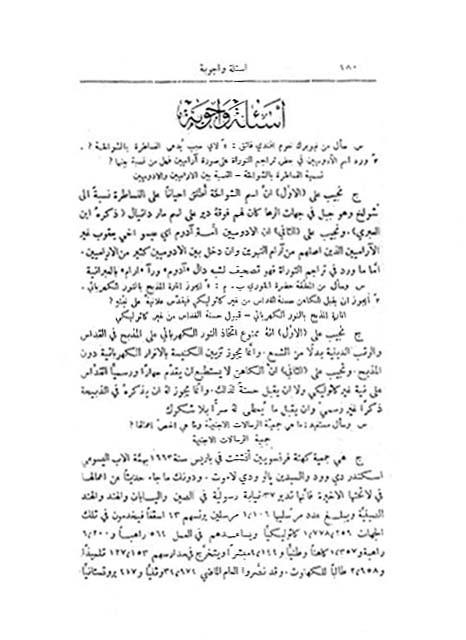 ٦٨٠ اسئلة واجوبة
أسئلة وأجوبة
س سأل من نيويرك نجوم الهندي فائق : ١ً لاي سبب يُدعى النساطرة بالشوالحة ؟ .
٢ً ورد اسم الأدوميين في بعض تراجم التوراة على صورة آراميين فهل من نسبة بينهما ؟
تسمية النساطرة بالشوالحة – النسبة بين الآراميين والادوميين
ج نجيب على (الأوَّل) انَّ اسم الشوالحة أُطلق احيانًا على النساطرة نسبةً الى
شولخ وهو جبل في جهات الرها كان لهم فوقهُ دير على اسم مار دانيال ( ذكرهُ ابن
العبري ) . ونجيب على (الثاني) انَّ الادوميين انسبة آدوم اي عيسو اخي يعقوب غير
الآراميين الذين اصلهم من آرام النهرين وان دخل بين الآدوميين كثير من الآراميين .
امَّا ما ورد في تراجم التوراة فهو تصحيف لشبه دال «آدوم» وراء «ارام» بالعبرانية
س وسأل من المطلقة حضرة الخوري ب . م : ١ً أيجوز انارة المذبح بالنور الكهربائي .
٢ً أيجوز ان يقبل الكاهن حسنة القداس من غير كاثوليكي فيقدّس علانيةً على نيَّتهِ ؟
انارة المذبح بالنور الكهربائي – قبول حسنة القداس من غير كاثوليكي
ج نجيب على (الأوَّل) انهُ ممنوع اتخاذ النور الكهربائي على المذبح في القداس
والرتب الدينية بدلًا من الشمع . وانَّما يجوز تزيين الكنيسة بالانوار الكهربائية دون
المذبح . ونجيب على (الثاني) انَّ الكاهن لا يستطيع ان يقدّم جهارًا ورسميًّا القدَّاس
على نية غير كاثوليكي ولا ان يقبل حسنةً لذلك . وانَّما يجوز لهُ ان يذكرهُ في الذبيحة
ذكرًا غير رسميّ وان يقبل ما يُعطى لهُ سرًّا بلا شكوك
س وسأل مستفيد : ما هي جمعيَّة الرسالات الاجنبيَّة وما هي اخصّ اعمالها ؟
جمعية الرسالات الاجنبية
ج هي جمعية كهنة فرنسويين أُنشئت في باريس سنة ١٦٦٣ بهمَّة الاب اليسوعي
اسكندر دي رود والسيدين بالو ودي لاموت . ودونك ما جاء حديثًا عن اعمالها
في لائحتها الاخيرة فانَّها تدير ٣٧ نيابة رسوليَّة في الصين واليابان والهند والهند
الصينيَّة ويبلغ عدد مرسليها ١,١٠٦ مرسلين يرئسهم ٤٣ اسقفًا فيخدمون في تلك
الجهات ١,٧٧٨,٢٥٦ كاثوليكيًّا ويساعدهم في العمل ٥٦٤ راهبًا و ٦,٢٠٠
راهبة و ١,٣٥٧ كاهنًا وطنيًّا و ٤,١٤٤ مبشّرًا ويتخرَّج في مدارسهم ١٢٧,١٥٣ تلميذًا
و ٢,٦٥٨ طالبًا للكهنوت . وقد نصَّروا العام الماضي ٣٤,٦٧٤ وثنيًّا و ٤٥٧ بروتستانيًّا